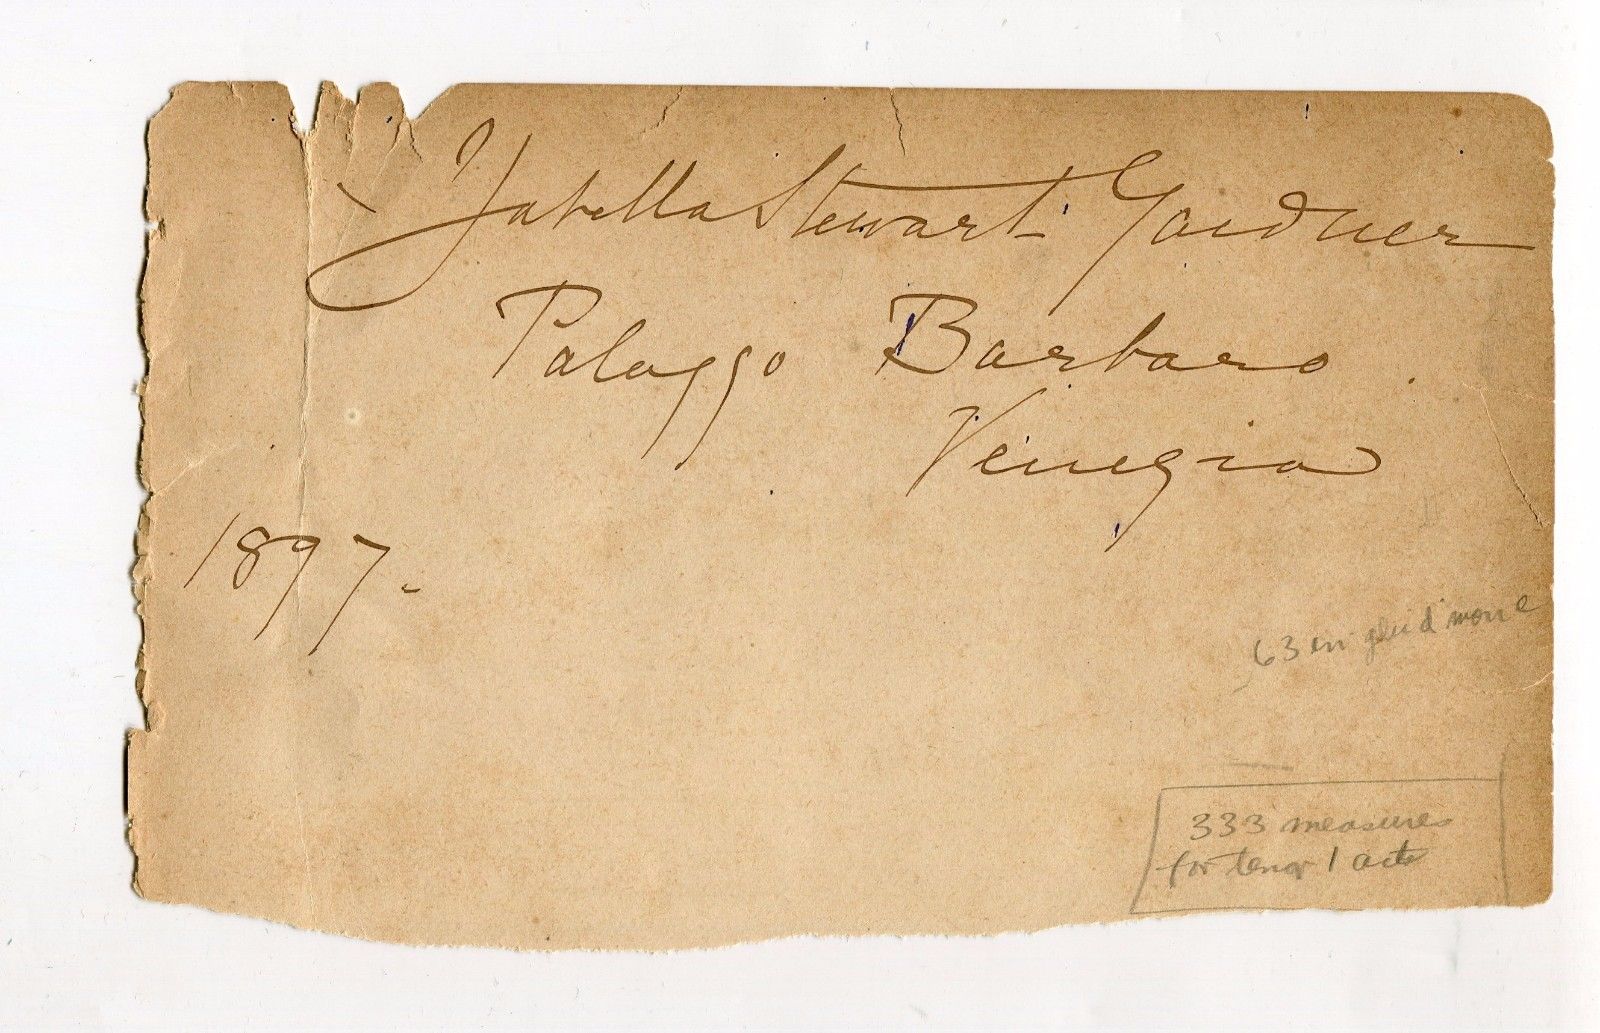 Isabella Stewart Gardner
Palazzo Barbaro.
Venezia
1897.
63 in
333 measures
for tenor 1 acte